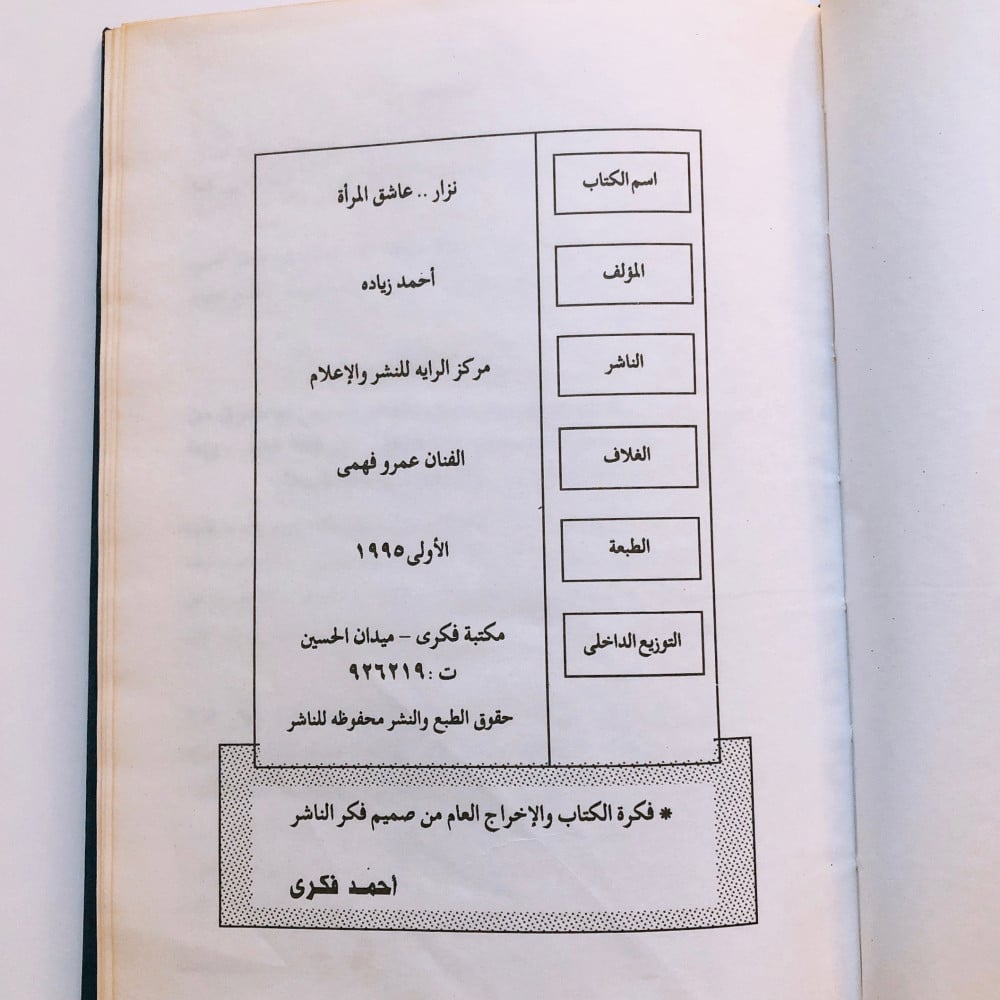 اسم الكتاب
نزار .. عاشق المرأة
المؤلف
أحمد زياده
الناشر
مركز الرايه للنشر والإعلام
الغلاف
الفنان عمرو فهمى
الطبعة
الأولى ١٩٩٥
التوزيع الداخلى
مكتبة فكرى – ميدان الحسين
ت : ٩٢٦٢١٩
حقوق الطبع والنشر محفوظه للناشر
* فكرة الكتاب والإخراج العام من صميم فكر الناشر
أحمد فكرى